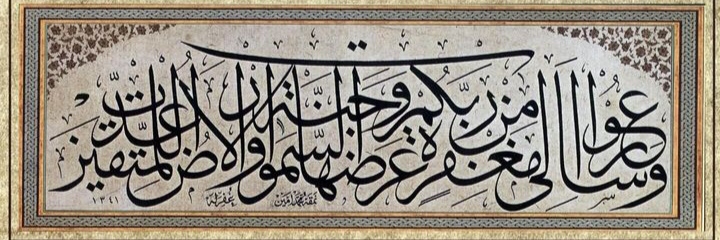 وسارعوا الى مغفرة من ربكم وجنة عرضها السموات والارض اعدت للمتقين
نمقه محمد امين غفر له ١٣٤١